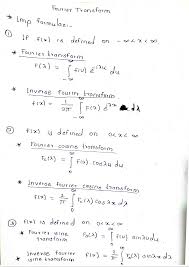 Fourier Transform
* Imp formulae:-
① If f(x) is defined on -∞<x<∞
* Fourier transform
F(λ) = ∫_{-∞}^{∞} f(u) e^{-iλu} du
* Inverse Fourier transform
f(x) = 1/2π ∫_{-∞}^{∞} F(λ) e^{iλx} dλ
② f(x) is defined on 0<x<∞
* Fourier cosine transform
Fc(λ) = ∫_0^∞ f(u) cosλu du
* Inverse Fourier cosine transform
f(x) = 2/π ∫_0^∞ Fc(λ) cosλx dλ
③ f(x) is defined on 0<x<∞
* Fourier sine transform
Fs(λ) = ∫_0^∞ f(u) sinλu du
* Inverse Fourier sine transform
f(x) = 2/π ∫_0^∞ Fs(λ) sinλx dλ